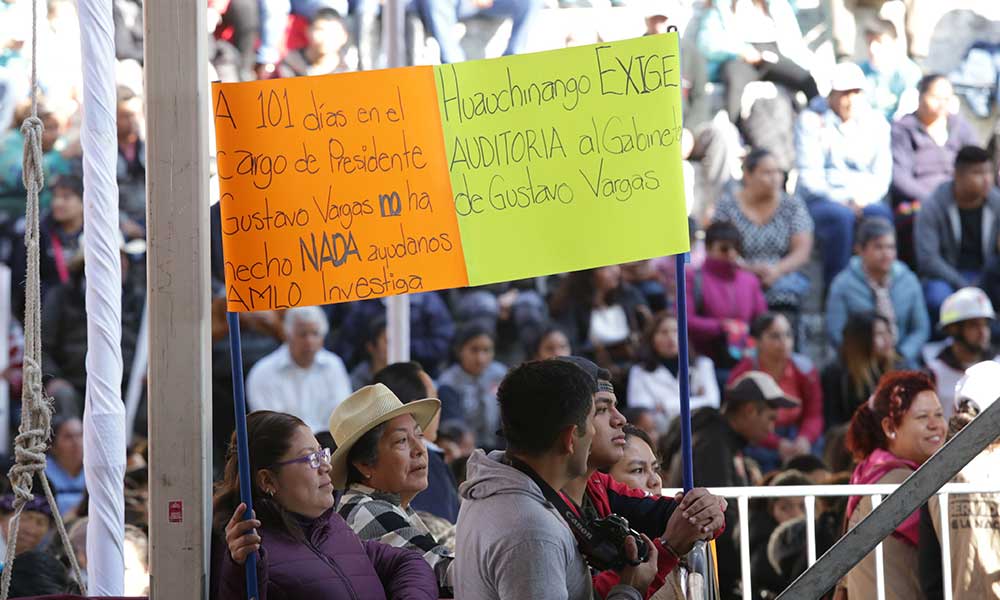 A 101 días en el
Cargo de Presidente
Gustavo Vargas no ha
hecho NADA ayudanos
AMLO Investiga
Huauchinango EXIGE
AUDITORIA al Gabinete
de Gustavo Vargas
Canon